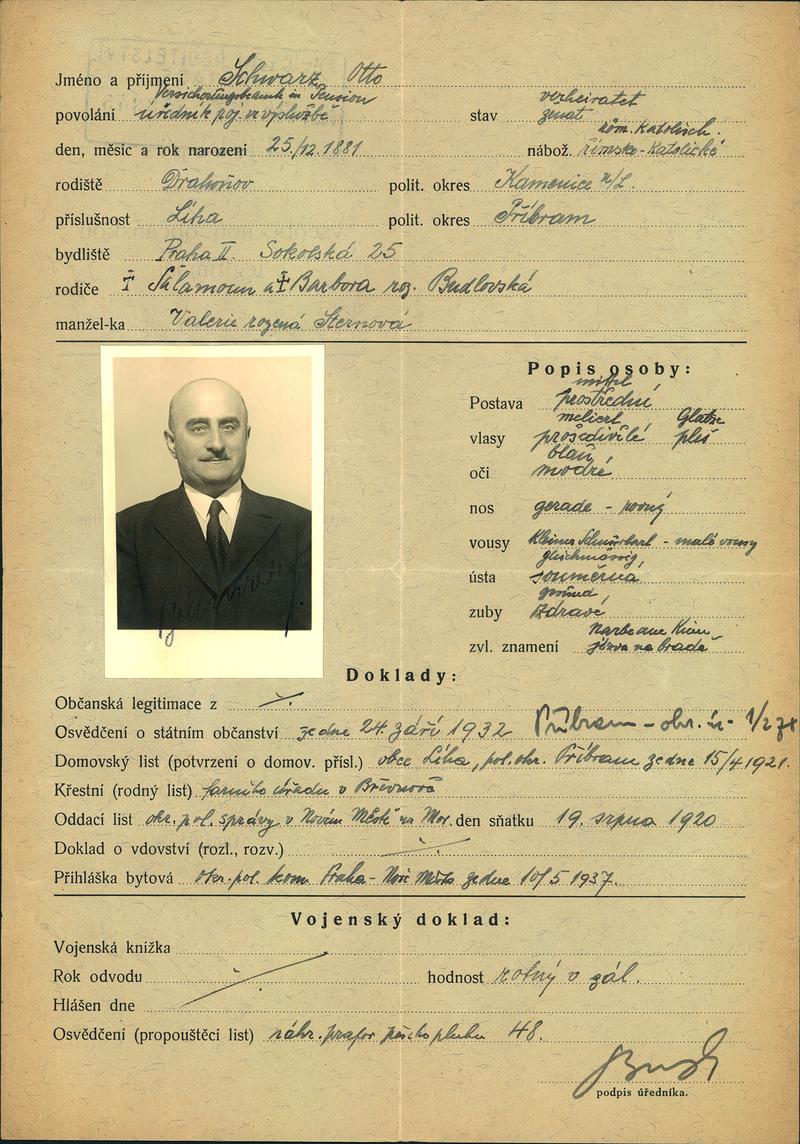 Jméno a příjmení Schwarz Otto
Versicherungsbeamte in Pension verheiratet
povolání úředník poj. ve výslužbě stav ženat
röm. Katolisch.
den, měsíc a rok narození 25./12. 1881 nábož. římsko-katolické
rodiště Drahoňov polit. okres Kamenice n/L.
příslušnost Líha polit. okres Příbram
bydliště Praha II. Sokolská 25
rodiče † Šalamoun a † Barbora roz. Budlovská
manžel-ka Valerie rozená Sternová
Popis osoby:
mittel,
Postava prostřední
meliert, Glatze
vlasy prošedivělé pleš
blau,
oči modré
nos gerade - rovný
vousy kleiner Schnurbart - malé vousy
gleichmässig,
ústa souměrná
gesund,
zuby zdravé
Narbe am Kinn
zvl. znamení jizva na bradě
Doklady:
Občanská legitimace z
Osvědčení o státním občanství ze dne 24. září 1932 Příbram - okr. úř.
Domovský list (potvrzení o domov. přísl.) obce Líha, pol. okr. Příbram ze dne 15/4 1921.
Křestní (rodný list) farního úřadu v Břevnově
Oddací list okr. pol. správy v Novém Městě na Mor. den sňatku 19. srpna 1920
Doklad o vdovství (rozl., rozv.)
Přihláška bytová okr. pol. kom. Praha - Nové Město ze dne 10/5 1937.
Vojenský doklad:
Vojenská knížka
Rok odvodu hodnost rotný v zál.
Hlášen dne
Osvědčení (propouštěcí list) náhr. prapor pěšího pluku 48.
podpis úředníka.